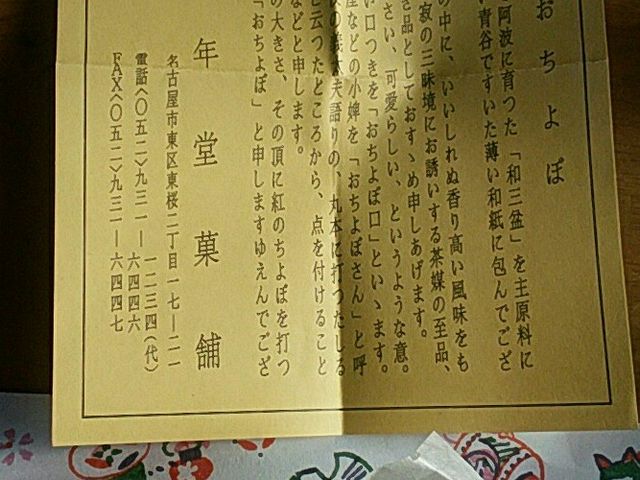 おちよぼ
阿波に育つた「和三盆」を主原料に
青谷ですいた薄い和紙に包んでござ
の中に、いいしれぬ香り高い風味をも
寂の三昧境にお誘いする茶媒の至品、
き品としておすゝめ申しあげます。
さい、可愛らしい、というような意。
い口つきを「おちよぼ口」といゝます。
などの小婢を「おちよぼさん」と呼
夫語りの、丸本に打つたしる
し云つたところから、点を付けること
などと申します。
の大きさ、その頂に紅のちよぼを打つ
「おちよぼ」と申しますゆえんでござ
年堂菓舗
名古屋市東区東桜二丁目一七―二一
電話〈〇五二〉九三一―一二三四(代)
六四四六
FAX〈〇五二〉九三一―六四四七